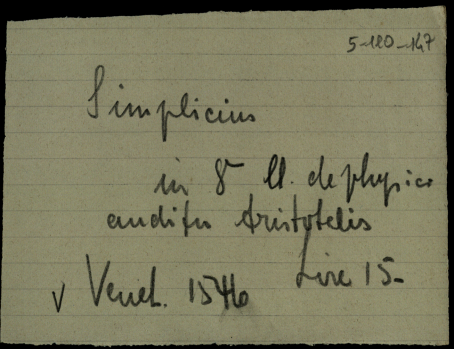 5-120-147
Simplicius
in 8 ll. de physico
auditu Aristotelis
V Venet. 1546 Lire 15-